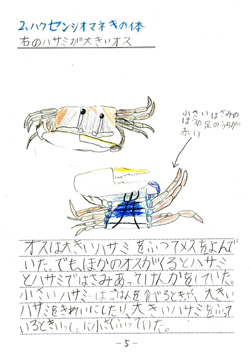 2、ハクセンシオマネキの体
右のハサミが大きいオス
小さいはさみの
ほうの足のうらが
赤い
オスは大きいハサミをふってメスをよんで
いた。でも、ほかのオスがくるとハサミ
とハサミではさみあってけんかをしていた。
小さいハサミはごはんを
ハサミをきれいにしたり、大きいハサミをふって
いるときいっしょに小さくふっていた。
- 5 -